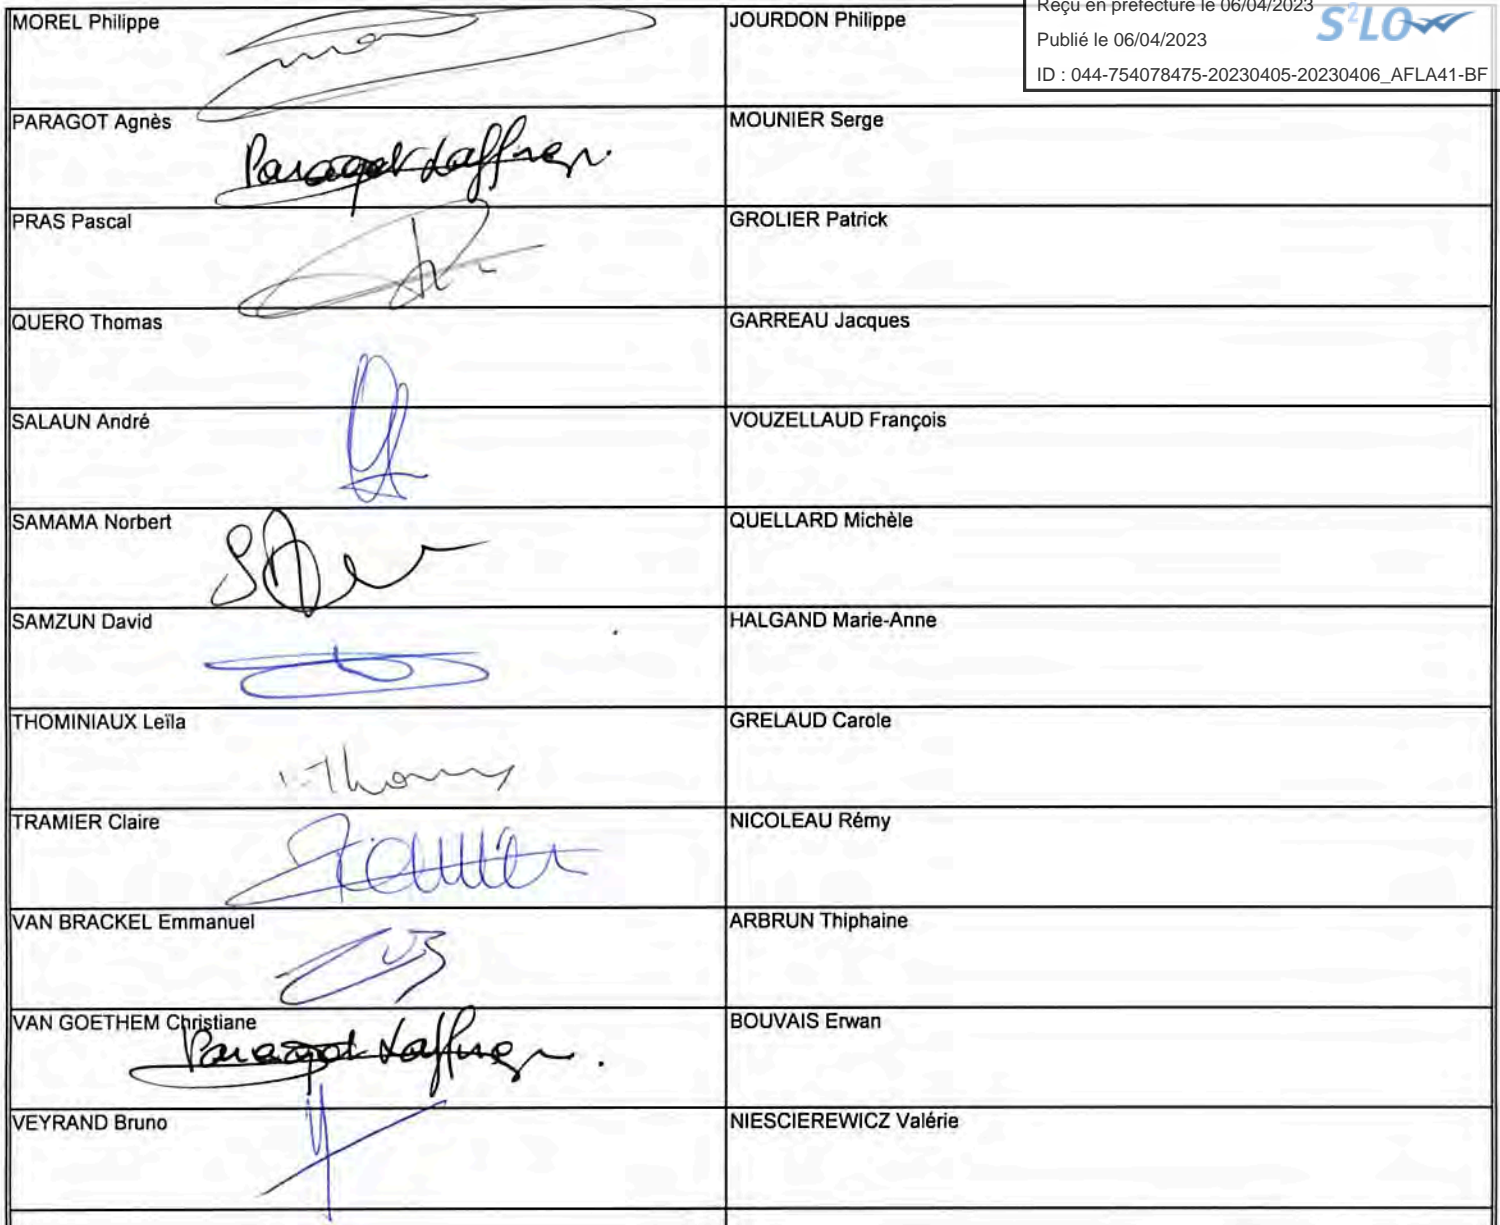 Reçu en préfecture le 06/04/2023
S²LO
Publié le 06/04/2023
ID : 044-754078475-20230405-20230406_AFLA41-BF
MOREL Philippe
JOURDON Philippe
PARAGOT Agnès
MOUNIER Serge
Paragot Laffneg.
PRAS Pascal
GROLIER Patrick
QUERO Thomas
GARREAU Jacques
SALAUN André
VOUZELLAUD François
SAMAMA Norbert
QUELLARD Michèle
SAMZUN David
HALGAND Marie-Anne
THOMINIAUX Leïla
GRELAUD Carole
TRAMIER Claire
NICOLEAU Rémy
VAN BRACKEL Emmanuel
ARBRUN Thiphaine
VAN GOETHEM Christiane
BOUVAIS Erwan
VEYRAND Bruno
NIESCIEREWICZ Valérie